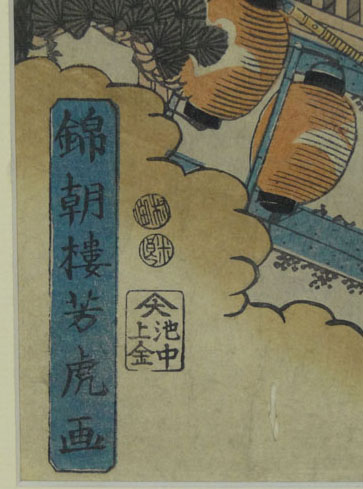 錦朝樓芳虎画
大
池中
上金